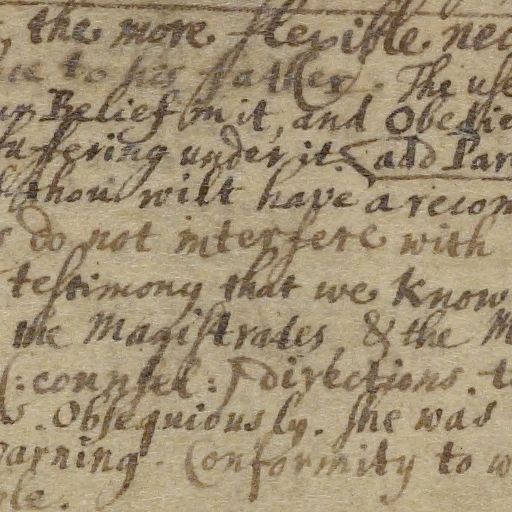 , the more flexible nec
ce to his father. The use
ur Belief in it, and Obedie
suffering under it. add Par
thou wilt have a recom
s do not interfere with
testimony that we know
the Magistrates, & the M
(: counsel :) directions. t
Obsequiously. she was
warning. Conformity to w
ple.